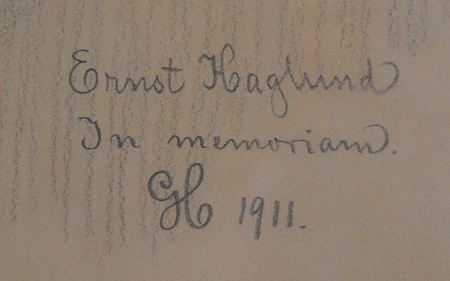 Ernst Haglund
In memoriam.
GH 1911.